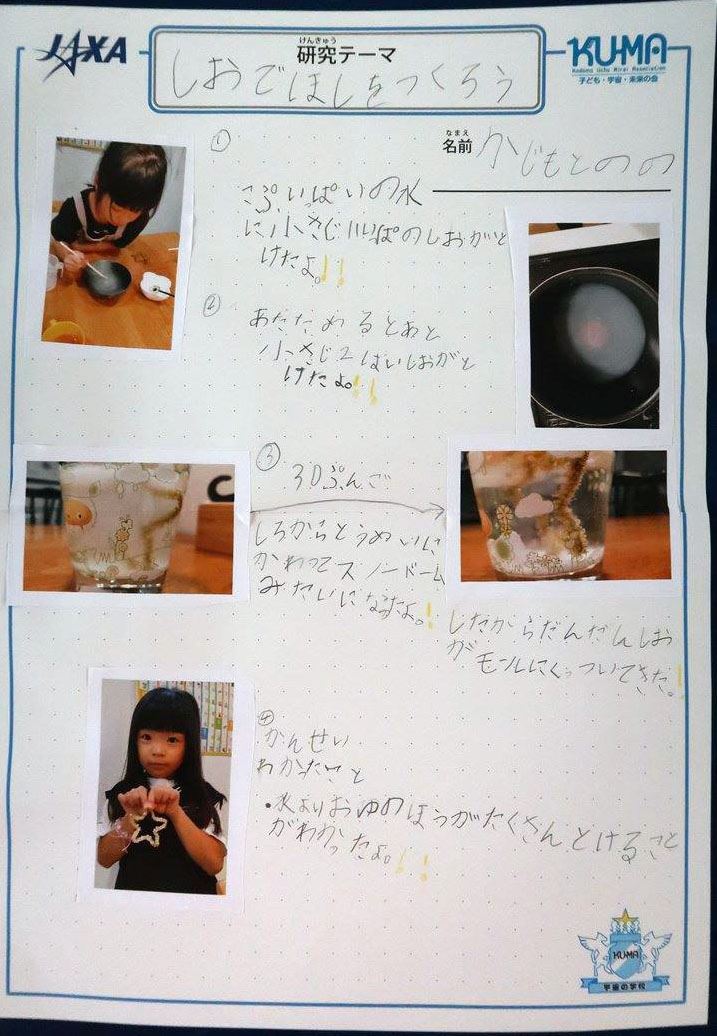 JAXA
けんきゅう
研究テーマ
しおでほしをつくろう
KU-MA
Kodomo Uchu Mirai Association
子ども・宇宙・未来の会
なまえ
名前 かじもとのの
①
こぷいっぱいの水
に小さじ11ぱいぱのしおがと
けたよ。!!
②
あたためるとあと
小さじ2はいしおがと
けたよ。!!
③
3日ぷんご
しろからとうめいに
かわってスノードーム
みたいになったよ。!
したからだんだんしお
がモールにくっついてきた。!
④
かんせい
わかったこと
・水よりおゆのほうがたくさんとけること
がわかったよ。!!
KU-MA
宇宙の学校